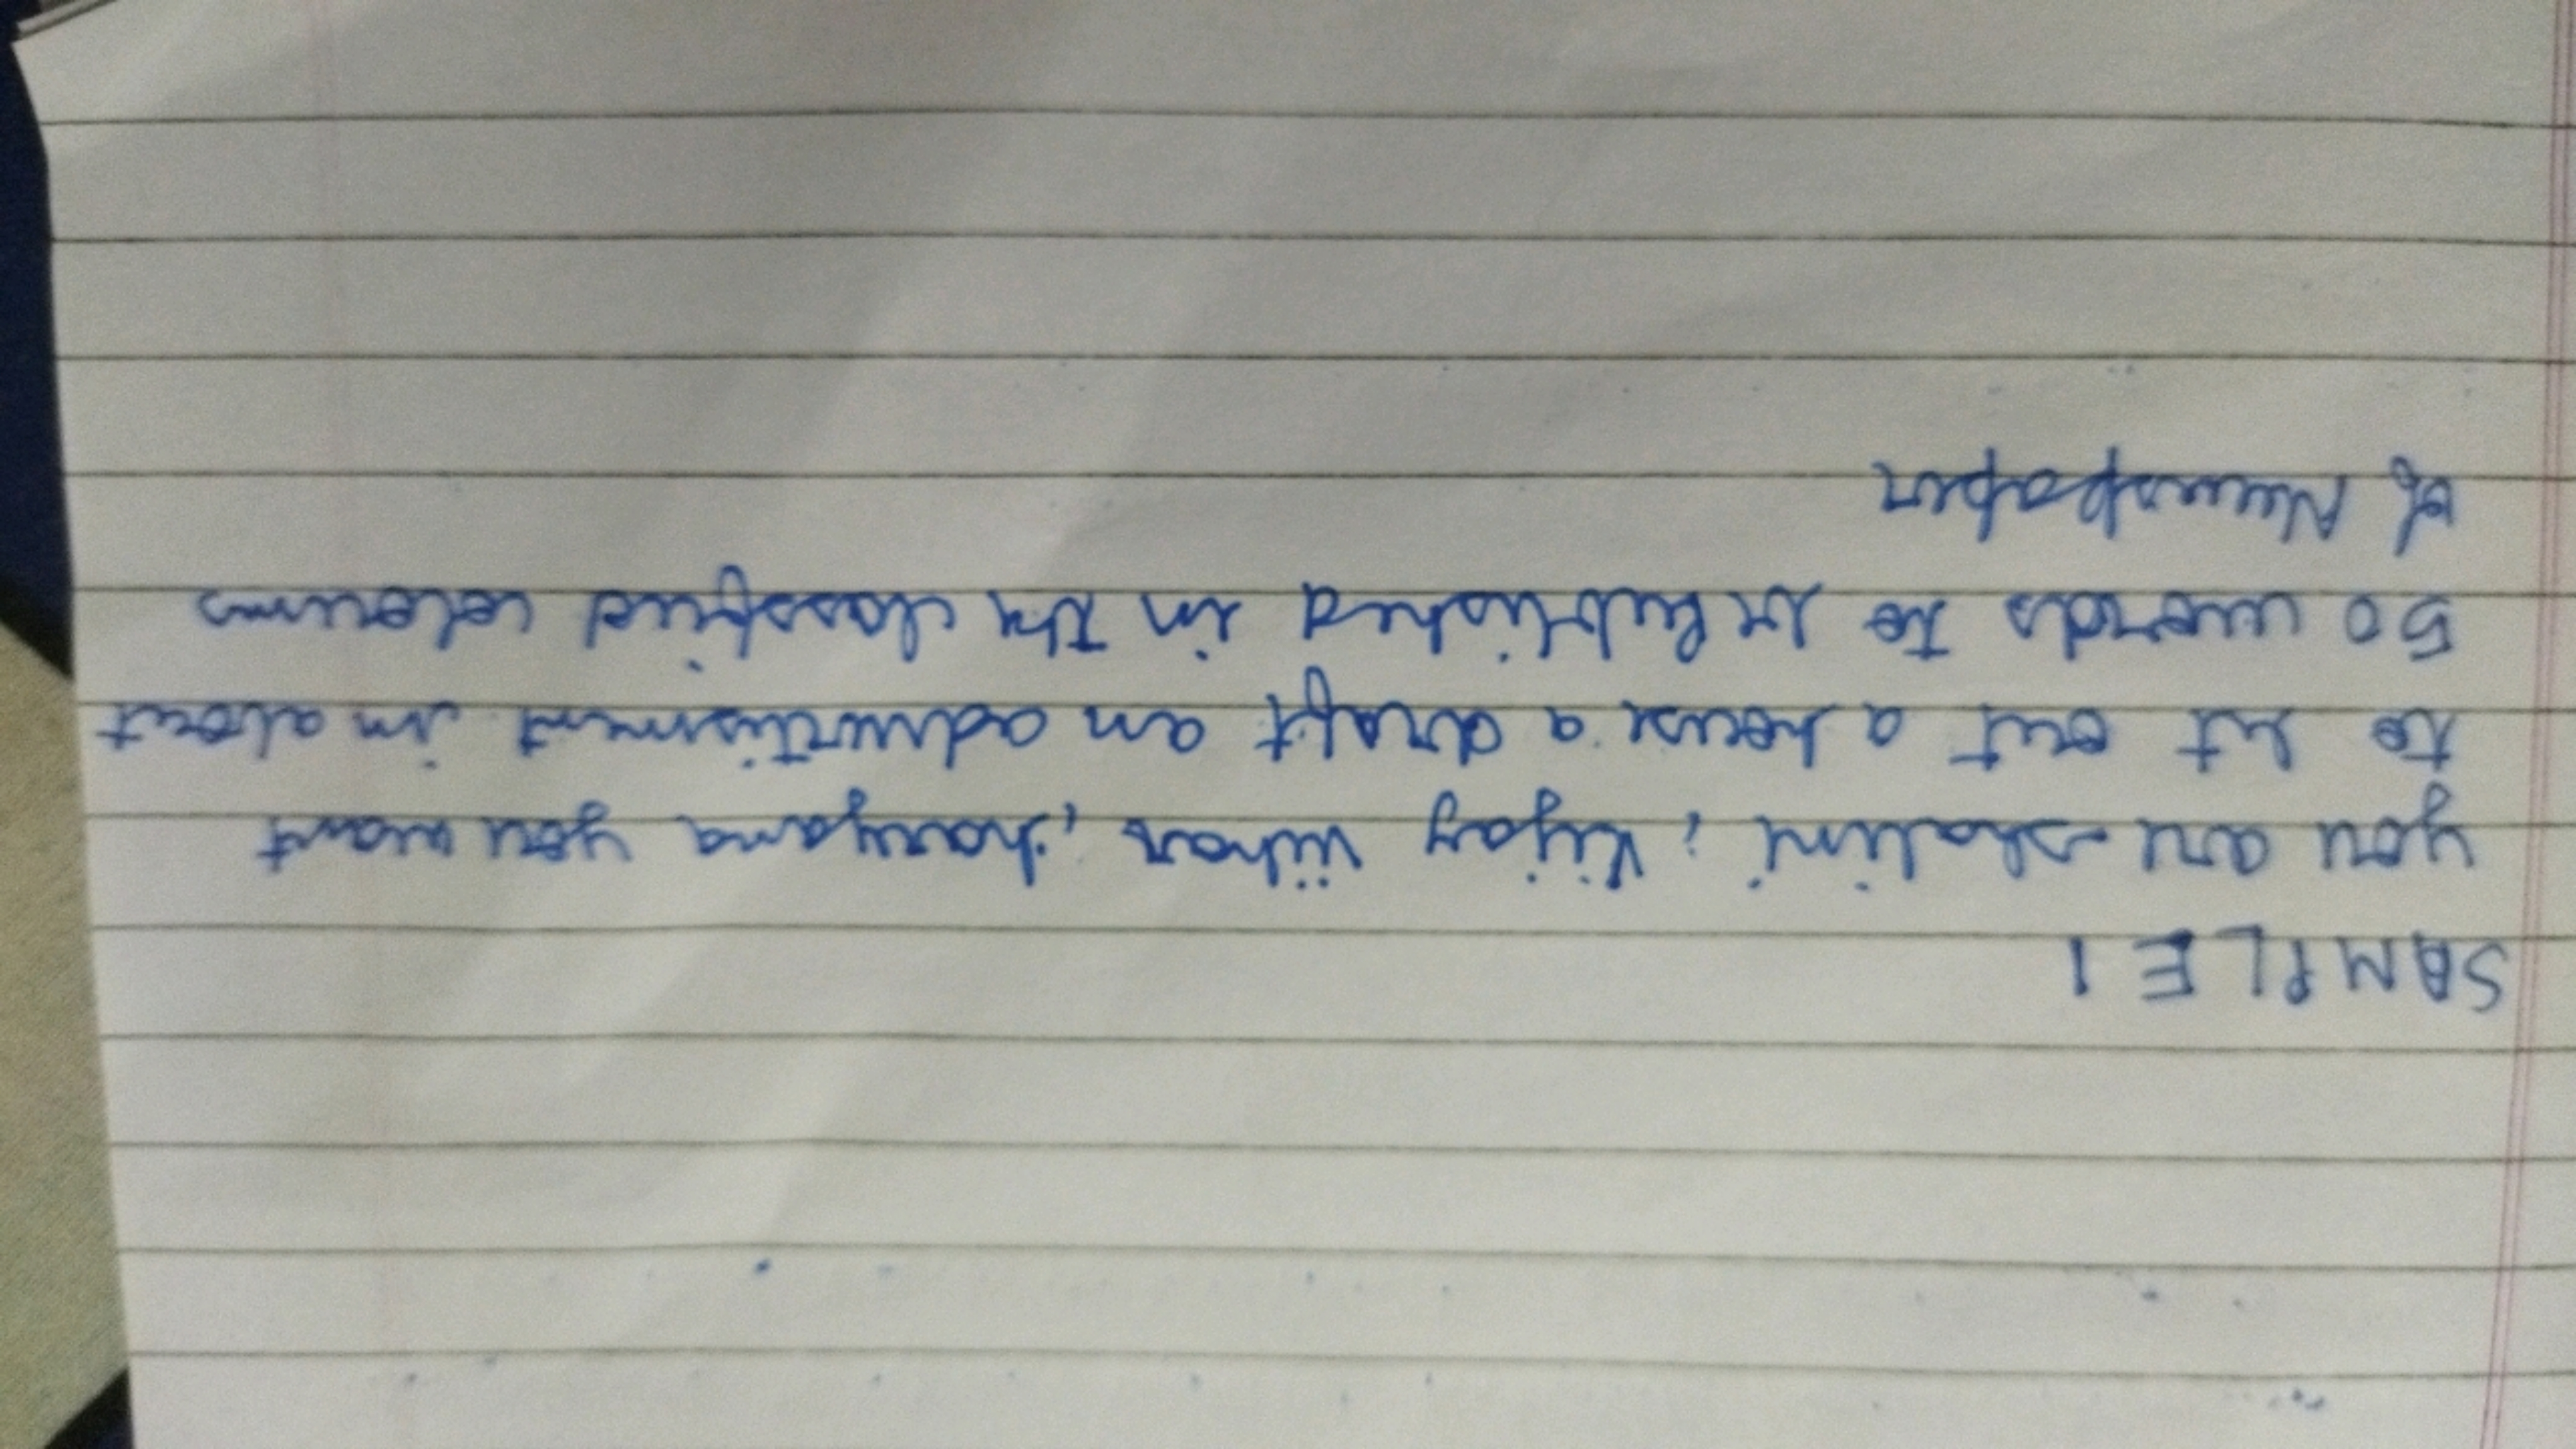 SAMPLE 1
you are shalini, Vijay vihar, haryana you want
to let out a house a draft an advertisment in about
50 words to be Published in the classfied coloums
of Newspaper